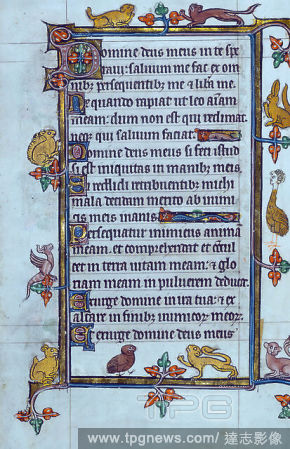 Domine deus meus in te spe
raui: saluum me fac ex om
nib; persequentib; me & liba me.
Ne quando rapiat ut leo aīam
meam: dum non est qui redimat.
neq; qui saluum faciat.
Domine deus meus si feci istud
si est iniquitas in manib; meis.
Si reddidi retribuentib; michi
mala: decidam merito ab inimi
cis meis inanis.
Persequatur inimicus animā
meam. et comprehendat et cōcul
cet in terra uitam meam: & glo
riam meam in puluerem deducat.
Exurge domine in ira tua: & ex
altare in finib; inimicoꝝ meoꝝ.
Et exurge domine deus meus
TPG
www.tpgnews.com/ 達志影像